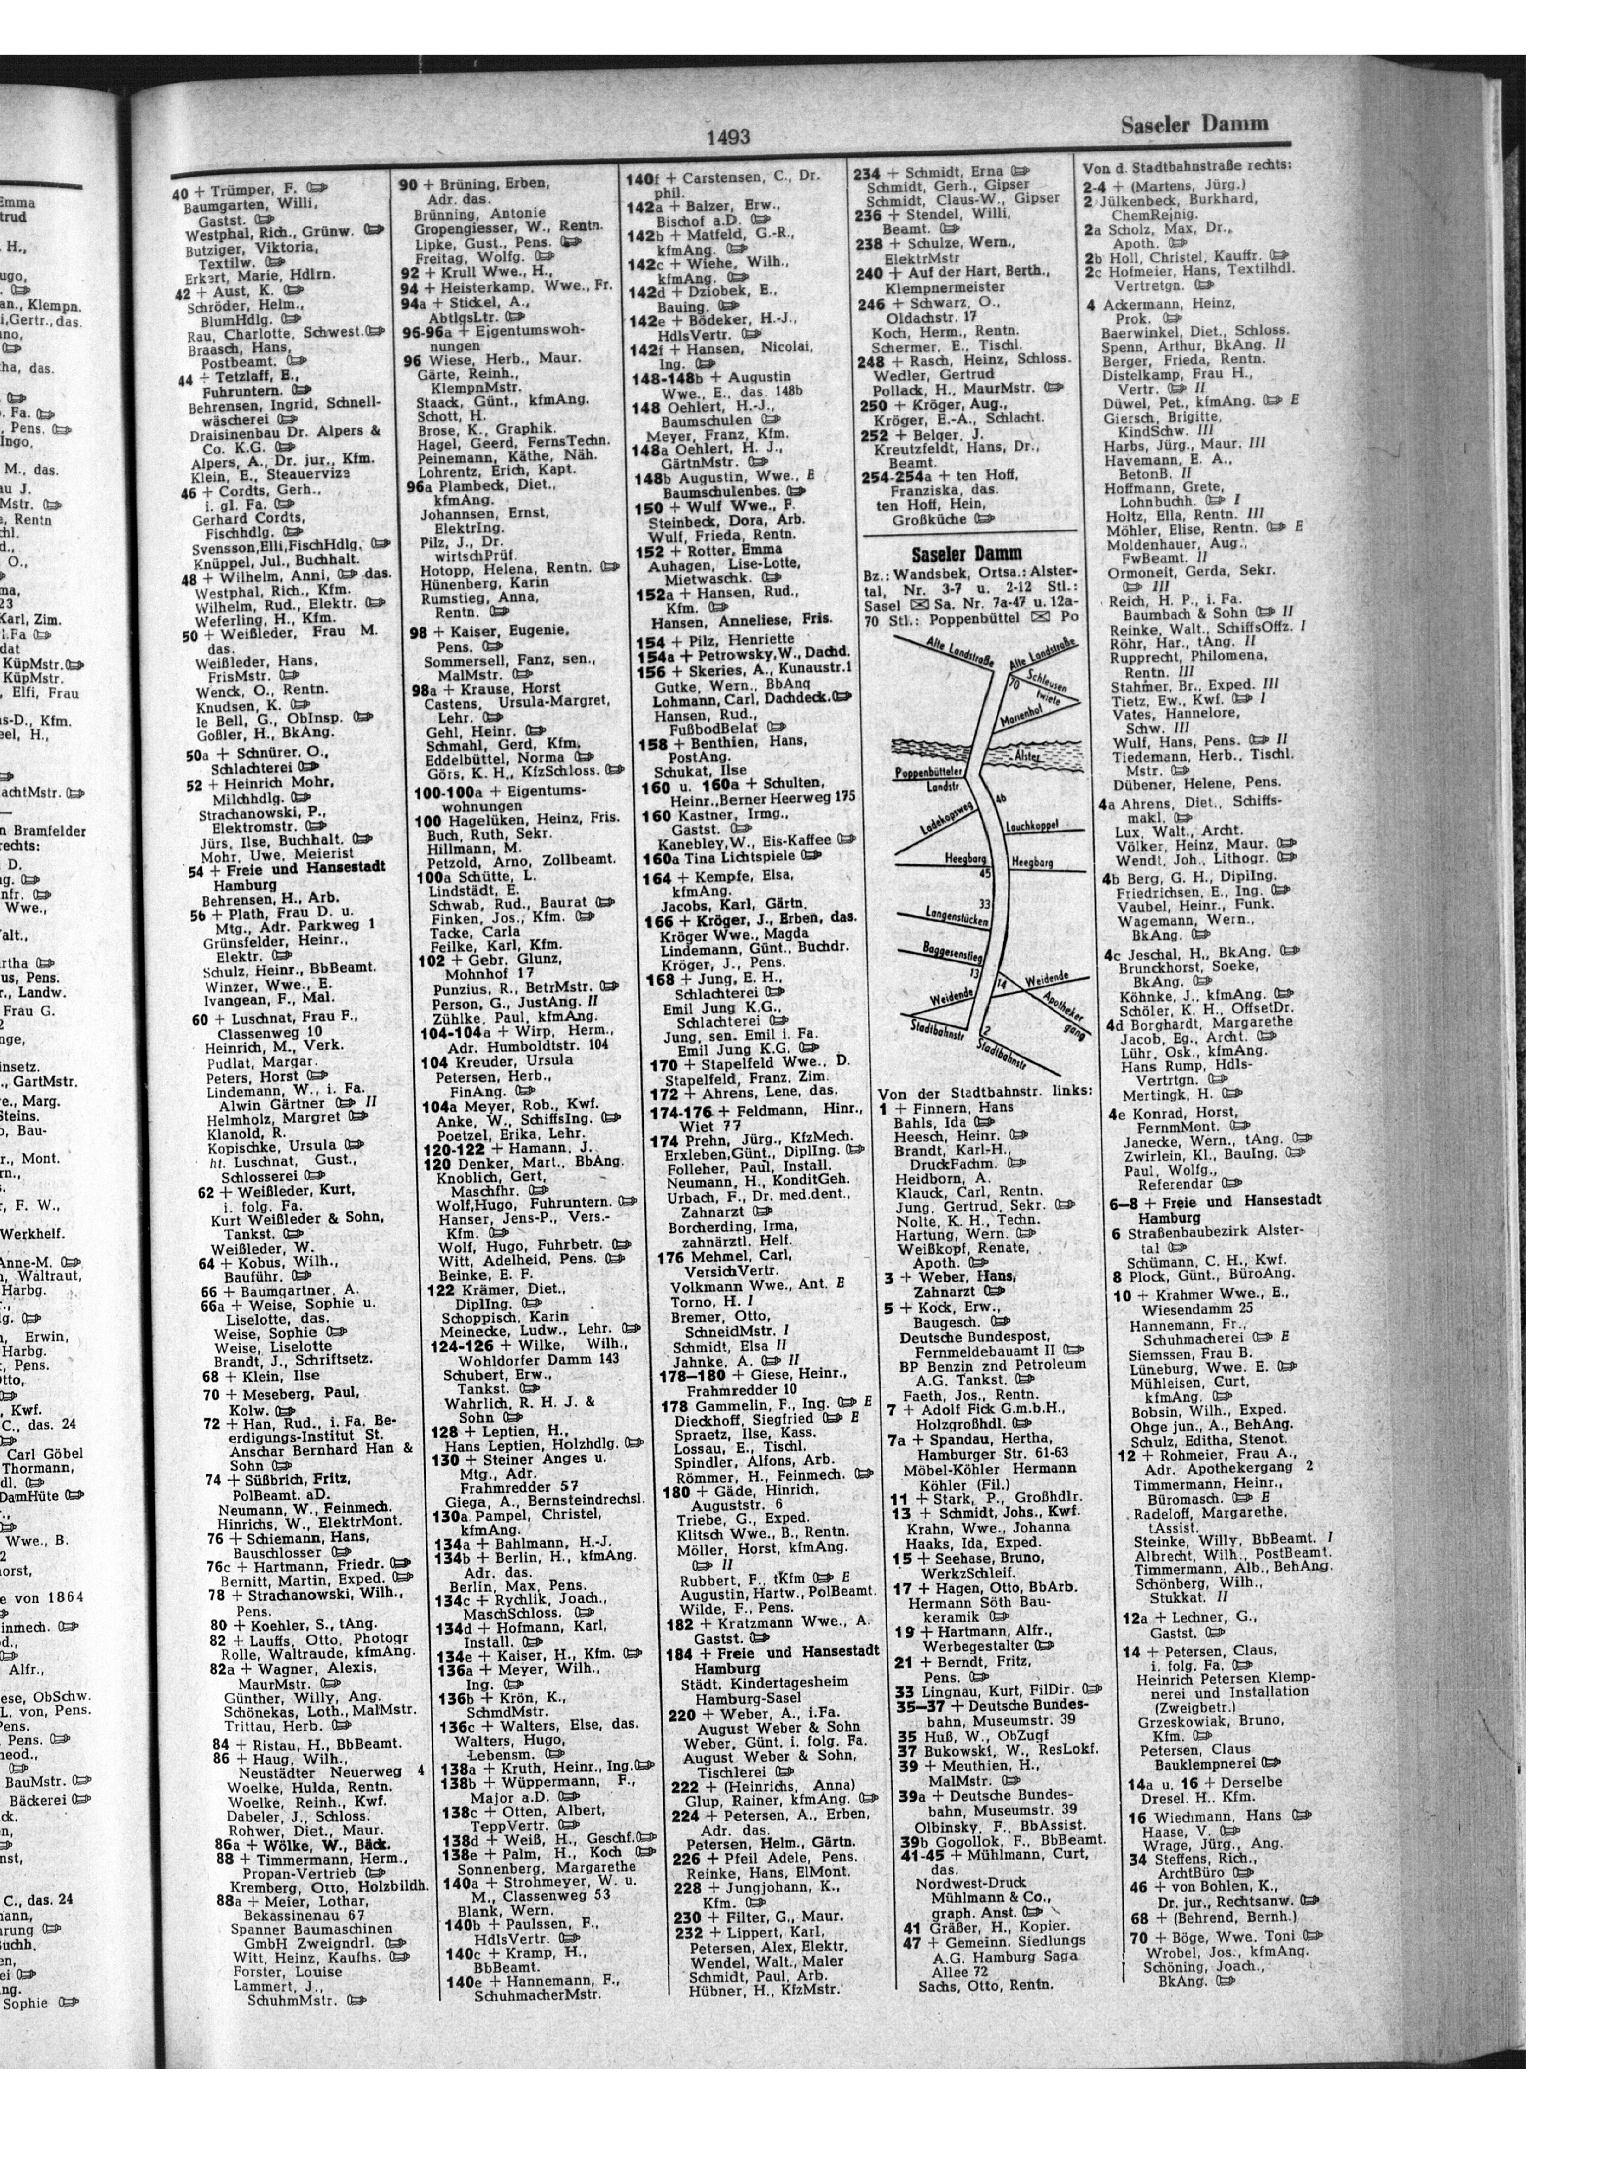 1493
Saseler Damm
40 + Trümper, F.
Baumgarten, Willi,
Gastst.
Westphal, Rich., Grünw.
Butziger, Viktoria,
Textilw.
Erkert, Marie, Hdlrn.
42 + Aust, K.
Schröder, Helm.,
BlumHdlg.
Rau, Charlotte, Schwest.
Braasch, Hans,
Postbeamt.
44 + Tetzlaff, E.,
Fuhruntern.
Behrensen, Ingrid, Schnell-
wäscherei
Draisinenbau Dr. Alpers &
Co. K.G.
Alpers, A., Dr. jur., Kfm.
Klein, E., Steauervize
46 + Cordts, Gerh.,
i. gl. Fa.
Gerhard Cordts,
Fischhdlg.
Svensson,Elli,FischHdlg.
Knüppel, Jul., Buchhalt.
48 + Wilhelm, Anni, das.
Westphal, Rich., Kfm.
Wilhelm, Rud., Elektr.
Weferling, H., Kfm.
50 + Weißleder, Frau M.
das.
Weißleder, Hans,
FrisMstr.
Wenck, O., Rentn.
Knudsen, K.
le Bell, G., ObInsp.
Goßler, H., BkAng.
50a + Schnürer, O.,
Schlachterei
52 + Heinrich Mohr,
Milchhdlg.
Strachanowski, P.,
Elektromstr.
Jürs, Ilse, Buchhalt.
Mohr, Uwe, Meierist
54 + Freie und Hansestadt
Hamburg
Behrensen, H., Arb.
56 + Plath, Frau D. u.
Mtg., Adr. Parkweg 1
Grünsfelder, Heinr.,
Elektr.
Schulz, Heinr., BbBeamt.
Winzer, Wwe., E.
Ivangean, F., Mal.
60 + Luschnat, Frau F.,
Classenweg 10
Heinrich, M., Verk.
Pudlat, Margar.
Peters, Horst
Lindemann, W., i. Fa.
Alwin Gärtner II
Helmholz, Margret
Klanold, R.
Kopischke, Ursula
ht. Luschnat, Gust.,
Schlosserei
62 + Weißleder, Kurt,
i. folg. Fa.
Kurt Weißleder & Sohn,
Tankst.
Weißleder, W.
64 + Kobus, Wilh.,
Bauführ.
66 + Baumgartner, A.
66a + Weise, Sophie u.
Liselotte, das.
Weise, Sophie
Weise, Liselotte
Brandt, J., Schriftsetz.
68 + Klein, Ilse
70 + Meseberg, Paul,
Kolw.
72 + Han, Rud., i. Fa. Be-
erdigungs-Institut St.
Anschar Bernhard Han &
Sohn
74 + Süßbrich, Fritz,
PolBeamt. aD.
Neumann, W., Feinmech.
Hinrichs, W., ElektrMont.
76 + Schiemann, Hans,
Bauschlosser
76c + Hartmann, Friedr.
Bernitt, Martin, Exped.
78 + Strachanowski, Wilh.,
Pens.
80 + Koehler, S., tAng.
82 + Lauffs, Otto, Photogr
Rolle, Waltraude, kfmAng.
82a + Wagner, Alexis,
MaurMstr.
Günther, Willy, Ang.
Schönekas, Loth., MalMstr.
Trittau, Herb.
84 + Ristau, H., BbBeamt.
86 + Haug, Wilh.,
Neustädter Neuerweg 4
Woelke, Hulda, Rentn.
Woelke, Reinh., Kwf.
Dabeler, J., Schloss.
Rohwer, Diet., Maur.
86a + Wölke, W., Bäck.
88 + Timmermann, Herm.,
Propan-Vertrieb
Kremberg, Otto, Holzbildh.
88a + Meier, Lothar,
Bekassinenau 67
Spanner Baumaschinen
GmbH Zweigndrl.
Witt, Heinz, Kaufhs.
Forster, Louise
Lammert, J.,
SchuhmMstr.
90 + Brüning, Erben,
Adr. das.
Brünning, Antonie
Gropengiesser, W., Rentn.
Lipke, Gust., Pens.
Freitag, Wolfg.
92 + Krull Wwe., H.,
94 + Heisterkamp, Wwe., Fr.
94a + Stickel, A.,
AbtlgsLtr.
96-96a + Eigentumswoh-
nungen
96 Wiese, Herb., Maur.
Gärte, Reinh.,
KlempnMstr.
Staack, Günt., kfmAng.
Schott, H.
Brose, K., Graphik.
Hagel, Geerd, FernsTechn.
Peinemann, Käthe, Näh.
Lohrentz, Erich, Kapt.
96a Plambeck, Diet.,
kfmAng.
Johannsen, Ernst,
ElektrIng.
Pilz, J., Dr.
wirtschPrüf.
Hotopp, Helena, Rentn.
Hünenberg, Karin
Rumstieg, Anna,
Rentn.
98 + Kaiser, Eugenie,
Pens.
Sommersell, Fanz, sen.,
MalMstr.
98a + Krause, Horst
Castens, Ursula-Margret,
Lehr.
Gehl, Heinr.
Schmahl, Gerd, Kfm.
Eddelbüttel, Norma
Görs, K. H., KfzSchloss.
100-100a + Eigentums-
wohnungen
100 Hagelüken, Heinz, Fris.
Buch, Ruth, Sekr.
Hillmann, M.
Petzold, Arno, Zollbeamt.
100a Schütte, L.
Lindstädt, E.
Schwab, Rud., Baurat
Finken, Jos., Kfm.
Tacke, Carla
Feilke, Karl, Kfm.
102 + Gebr. Glunz,
Mohnhof 17
Punzius, R., BetrMstr.
Person, G., JustAng. II
Zühlke, Paul, kfmAng.
104-104a + Wirp, Herm.,
Adr. Humboldtstr. 104
104 Kreuder, Ursula
Petersen, Herb.,
FinAng.
104a Meyer, Rob., Kwf.
Anke, W., SchiffsIng.
Poetzel, Erika, Lehr.
120-122 + Hamann, J.
120 Denker, Mart., BbAng.
Knoblich, Gert,
Maschfhr.
Wolf,Hugo, Fuhruntern.
Hanser, Jens-P., Vers.-
Kfm.
Wolf, Hugo, Fuhrbetr.
Witt, Adelheid, Pens.
Beinke, E. F.
122 Krämer, Diet.,
DiplIng.
Schoppisch, Karin
Meinecke, Ludw., Lehr.
124-126 + Wilke, Wilh.,
Wohldorfer Damm 143
Schubert, Erw.,
Tankst.
Wahrlich, R. H. J. &
Sohn
128 + Leptien, H.,
Hans Leptien, Holzhdlg.
130 + Steiner Anges u.
Mtg., Adr.
Frahmredder 57
Giega, A., Bernsteindrechsl.
130a Pampel, Christel,
kfmAng.
134a + Bahlmann, H.-J.
134b + Berlin, H., kfmAng.
Adr. das.
Berlin, Max, Pens.
134c + Rychlik, Joach.,
MaschSchloss.
134d + Hofmann, Karl,
Install.
134e + Kaiser, H., Kfm.
136a + Meyer, Wilh.,
Ing.
136b + Krön, K.,
SchmdMstr.
136c + Walters, Else, das.
Walters, Hugo,
Lebensm.
138a + Kruth, Heinr., Ing.
138b + Wüppermann, F.,
Major a.D.
138c + Otten, Albert,
TeppVertr.
138d + Weiß, H., Geschf.
138e + Palm, H., Koch
Sonnenberg, Margarethe
140a + Strohmeyer, W. u.
M., Classenweg 53
Blank, Wern.
140b + Paulssen, F.,
HdlsVertr.
140c + Kramp, H.,
BbBeamt.
140e + Hannemann, F.,
SchuhmacherMstr.
140f + Carstensen, C., Dr.
phil.
142a + Balzer, Erw.,
Bischof a.D.
142b + Matfeld, G.-R.,
kfmAng.
142c + Wiehe, Wilh.,
kfmAng.
142d + Dziobek, E.,
Bauing.
142e + Bödeker, H.-J.,
HdlsVertr.
142f + Hansen, Nicolai,
Ing.
148-148b + Augustin
Wwe., E., das. 148b
148 Oehlert, H.-J.,
Baumschulen
Meyer, Franz, Kfm.
148a Oehlert, H. J.,
GärtnMstr.
148b Augustin, Wwe., E
Baumschulenbes.
150 + Wulf Wwe., F.
Steinbeck, Dora, Arb.
Wulf, Frieda, Rentn.
152 + Rotter, Emma
Auhagen, Lise-Lotte,
Mietwaschk.
152a + Hansen, Rud.,
Kfm.
Hansen, Anneliese, Fris.
154 + Pilz, Henriette
154a + Petrowsky,W., Dachd.
156 + Skeries, A., Kunaustr.1
Gutke, Wern., BbAng
Lohmann, Carl, Dachdeck.
Hansen, Rud.,
FußbodBelat
158 + Benthien, Hans,
PostAng.
Schukat, Ilse
160 u. 160a + Schulten,
Heinr.,Berner Heerweg 175
160 Kastner, Irmg.,
Gastst.
Kanebley,W., Eis-Kaffee
160a Tina Lichtspiele
164 + Kempfe, Elsa,
kfmAng.
Jacobs, Karl, Gärtn.
166 + Kröger, J., Erben, das.
Kröger Wwe., Magda
Lindemann, Günt., Buchdr.
Kröger, J., Pens.
168 + Jung, E. H.,
Schlachterei
Emil Jung K.G.,
Schlachterei
Jung, sen. Emil i. Fa.
Emil Jung K.G.
170 + Stapelfeld Wwe., D.
Stapelfeld, Franz, Zim.
172 + Ahrens, Lene, das.
174-176 + Feldmann, Hinr.,
Wiet 77
174 Prehn, Jürg., KfzMech.
Erxleben,Günt., DiplIng.
Folleher, Paul, Install.
Neumann, H., KonditGeh.
Urbach, F., Dr. med.dent.,
Zahnarzt
Borcherding, Irma,
zahnärztl. Helf.
176 Mehmel, Carl,
VersichVertr.
Volkmann Wwe., Ant. E
Torno, H. I
Bremer, Otto,
SchneidMstr. I
Schmidt, Elsa II
Jahnke, A. II
178—180 + Giese, Heinr.,
Frahmredder 10
178 Gammelin, F., Ing. E
Dieckhoff, Siegfried E
Spraetz, Ilse, Kass.
Lossau, E., Tischl.
Spindler, Alfons, Arb.
Römmer, H., Feinmech.
180 + Gäde, Hinrich,
Auguststr. 6
Triebe, G., Exped.
Klitsch Wwe., B., Rentn.
Möller, Horst, kfmAng.
II
Rubbert, F., tKfm E
Augustin, Hartw., PolBeamt.
Wilde, F., Pens.
182 + Kratzmann Wwe., A.
Gastst.
184 + Freie und Hansestadt
Hamburg
Städt. Kindertagesheim
Hamburg-Sasel
220 + Weber, A., i.Fa.
August Weber & Sohn
Weber, Günt. i. folg. Fa.
August Weber & Sohn,
Tischlerei
222 + (Heinrichs, Anna)
Glup, Rainer, kfmAng.
224 + Petersen, A., Erben,
Adr. das.
Petersen, Helm., Gärtn.
226 + Pfeil Adele, Pens.
Reinke, Hans, ElMont.
228 + Jungjohann, K.,
Kfm.
230 + Filter, G., Maur.
232 + Lippert, Karl,
Petersen, Alex, Elektr.
Wendel, Walt., Maler
Schmidt, Paul, Arb.
Hübner, H., KfzMstr.
234 + Schmidt, Erna
Schmidt, Gerh., Gipser
Schmidt, Claus-W., Gipser
236 + Stendel, Willi,
Beamt.
238 + Schulze, Wern.,
ElektrMstr
240 + Auf der Hart, Berth.,
Klempnermeister
246 + Schwarz, O.,
Oldachstr. 17
Koch, Herm., Rentn.
Schermer, E., Tischl.
248 + Rasch, Heinz, Schloss.
Wedler, Gertrud
Pollack, H., MaurMstr.
250 + Kröger, Aug.,
Kröger, E.-A., Schlacht.
252 + Belger, J.
Kreutzfeldt, Hans, Dr.,
Beamt.
254-254a + ten Hoff,
Franziska, das.
ten Hoff, Hein,
Großküche
Saseler Damm
Bz.: Wandsbek, Ortsa.: Alster-
tal, Nr. 3-7 u. 2-12 Stl.:
Sasel Sa. Nr. 7a-47 u. 12a-
70 Stl.: Poppenbüttel Po
Alte Landstraße
Alte Landstraße
70
Schleusen
twiete
Marienhof
Alster
Poppenbütteler
Landstr.
4b
Ladekopsweg
Lauchkoppel
Heegbarg
Heegbarg
45
33
Langenstücken
Baggesenstieg
13
14
Weidende
Weidende
Apotheker
gang
Stadtbahnstr
2
Stadtbahnstr
Von der Stadtbahnstr. links:
1 + Finnern, Hans
Bahls, Ida
Heesch, Heinr.
Brandt, Karl-H.,
DruckFachm.
Heidborn, A.
Klauck, Carl, Rentn.
Jung, Gertrud, Sekr.
Nolte, K. H., Techn.
Hartung, Wern.
Weißkopf, Renate,
Apoth.
3 + Weber, Hans,
Zahnarzt
5 + Kock, Erw.,
Baugesch.
Deutsche Bundespost,
Fernmeldebauamt II
BP Benzin znd Petroleum
A.G. Tankst.
Faeth, Jos., Rentn.
7 + Adolf Fick G.m.b.H.,
Holzgroßhdl.
7a + Spandau, Hertha,
Hamburger Str. 61-63
Möbel-Köhler Hermann
Köhler (Fil.)
11 + Stark, P., Großhdlr.
13 + Schmidt, Johs., Kwf.
Krahn, Wwe., Johanna
Haaks, Ida, Exped.
15 + Seehase, Bruno,
WerkzSchleif.
17 + Hagen, Otto, BbArb.
Hermann Söth Bau-
keramik
19 + Hartmann, Alfr.,
Werbegestalter
21 + Berndt, Fritz,
Pens.
33 Lingnau, Kurt, FilDir.
35—37 + Deutsche Bundes-
bahn, Museumstr. 39
35 Huß, W., ObZugf
37 Bukowski, W., ResLokf.
39 + Meuthien, H.,
MalMstr.
39a + Deutsche Bundes-
bahn, Museumstr. 39
Olbinsky, F., BbAssist.
39b Gogollok, F., BbBeamt.
41-45 + Mühlmann, Curt,
das.
Nordwest-Druck
Mühlmann & Co.,
graph. Anst.
41 Gräßer, H., Kopier.
47 + Gemeinn. Siedlungs
A.G. Hamburg Saga
Allee 72
Sachs, Otto, Rentn.
Von d. Stadtbahnstraße rechts:
2-4 + (Martens, Jürg.)
2 Jülkenbeck, Burkhard,
ChemReinig.
2a Scholz, Max, Dr.,
Apoth.
2b Holl, Christel, Kauffr.
2c Hofmeier, Hans, Textilhdl.
Vertretgn.
4 Ackermann, Heinz,
Prok.
Baerwinkel, Diet., Schloss.
Spenn, Arthur, BkAng. II
Berger, Frieda, Rentn.
Distelkamp, Frau H.,
Vertr. II
Düwel, Pet., kfmAng. E
Giersch, Brigitte,
KindSchw. III
Harbs, Jürg., Maur. III
Havemann, E. A.,
BetonB. II
Hoffmann, Grete,
Lohnbuchh. I
Holtz, Ella, Rentn. III
Möhler, Elise, Rentn. E
Moldenhauer, Aug.,
FwBeamt. II
Ormoneit, Gerda, Sekr.
III
Reich, H. P., i. Fa.
Baumbach & Sohn II
Reinke, Walt., SchiffsOffz. I
Röhr, Har., tAng. II
Rupprecht, Philomena,
Rentn. III
Stahmer, Br., Exped. III
Tietz, Ew., Kwf. I
Vates, Hannelore,
Schw. III
Wulf, Hans, Pens. II
Tiedemann, Herb., Tischl.
Mstr.
Dübener, Helene, Pens.
4a Ahrens, Diet., Schiffs-
makl.
Lux, Walt., Archt.
Völker, Heinz, Maur.
Wendt, Joh., Lithogr.
4b Berg, G. H., DiplIng.
Friedrichsen, E., Ing.
Vaubel, Heinr., Funk.
Wagemann, Wern.,
BkAng.
4c Jeschal, H., BkAng.
Brunckhorst, Soeke,
BkAng.
Köhnke, J., kfmAng.
Schöler, K. H., OffsetDr.
4d Borghardt, Margarethe
Jacob, Eg., Archt.
Lühr, Osk., kfmAng.
Hans Rump, Hdls-
Vertrtgn.
Mertingk, H.
4e Konrad, Horst,
FernmMont.
Janecke, Wern., tAng.
Zwirlein, Kl., BauIng.
Paul, Wolfg.,
Referendar
6—8 + Freie und Hansestadt
Hamburg
6 Straßenbaubezirk Alster-
tal
Schümann, C. H., Kwf.
8 Plock, Günt., BüroAng.
10 + Krahmer Wwe., E.,
Wiesendamm 25
Hannemann, Fr.,
Schuhmacherei E
Siemssen, Frau B.
Lüneburg, Wwe. E.
Mühleisen, Curt,
kfmAng.
Bobsin, Wilh., Exped.
Ohge jun., A., BehAng.
Schulz, Editha, Stenot.
12 + Rohmeier, Frau A.,
Adr. Apothekergang 2
Timmermann, Heinr.,
Büromasch. E
Radeloff, Margarethe,
tAssist.
Steinke, Willy, BbBeamt. I
Albrecht, Wilh., PostBeamt.
Timmermann, Alb., BehAng.
Schönberg, Wilh.,
Stukkat. II
12a + Lechner, G.,
Gastst.
14 + Petersen, Claus,
i. folg. Fa.
Heinrich Petersen Klemp-
nerei und Installation
(Zweigbetr.)
Grzeskowiak, Bruno,
Kfm.
Petersen, Claus
Bauklempnerei
14a u. 16 + Derselbe
Dresel, H., Kfm.
16 Wiechmann, Hans
Haase, V.
Wrage, Jürg., Ang.
34 Steffens, Rich.,
ArchtBüro
46 + von Bohlen, K.,
Dr. jur., Rechtsanw.
68 + (Behrend, Bernh.)
70 + Böge, Wwe. Toni
Wrobel, Jos., kfmAng.
Schöning, Joach.,
BkAng.